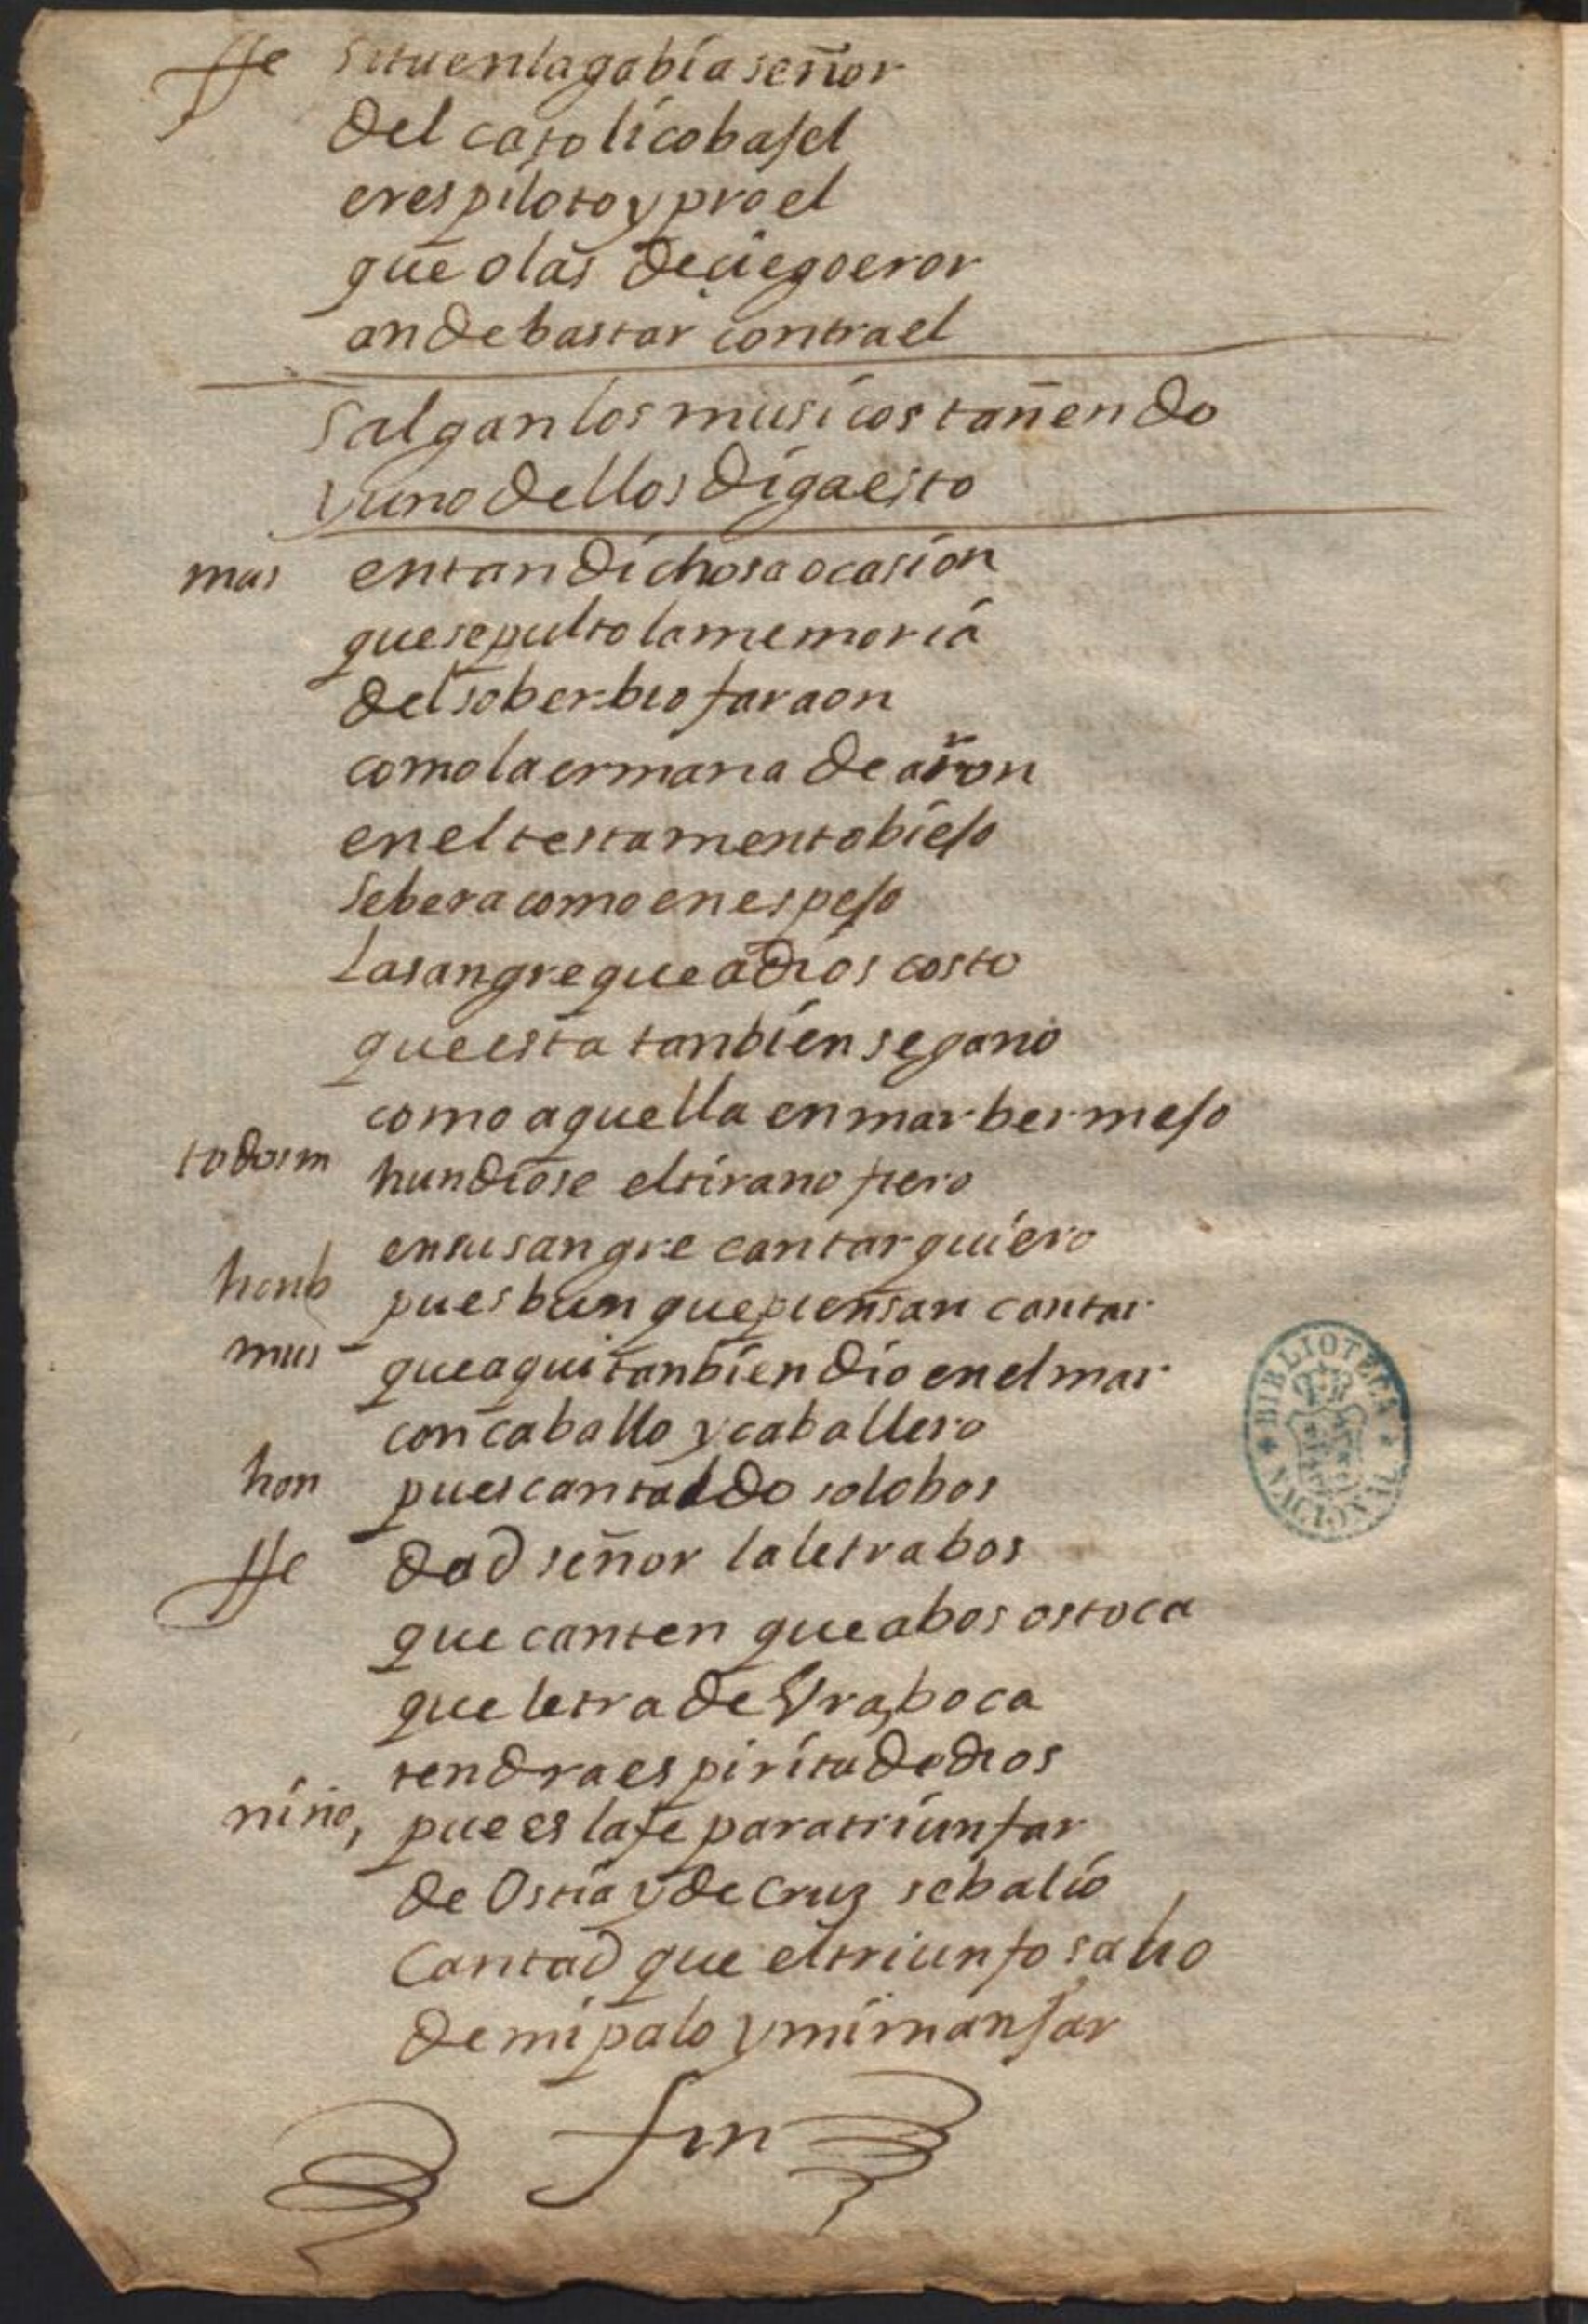 ffe si tu en la gabia señor
del catolico bajel
eres piloto y proel
que olas de ciego eror
an de bastar contra el
Salgan los musicos tañendo
y uno dellos diga esto
mus en tan dichosa ocasion
que sepulto la memoria
del soberbio faraon
como la ermana de aron
en el testamento biejo
se bera como en espejo
la sangre que a dios costo
que esta tanbien se gano
como aquella en mar bermejo
todos m hundiose el tirano fiero
en su sangre cantar quiero
honb pues bien que piensan cantar
mus que aqui tanbien dio en el mar
con caballo y caballero
hon pues cantaldo solo bos
ffe dad señor la letra bos
que canten que a bos os toca
que letra de Vra boca
tendra espiritu de dios
niño, pues la fe para triunfar
de Ostia y de Cruz se balio
Cantad que el triunfo salio
de mi palo y mi manjar
fin
BIBLIOTECA NACIONAL